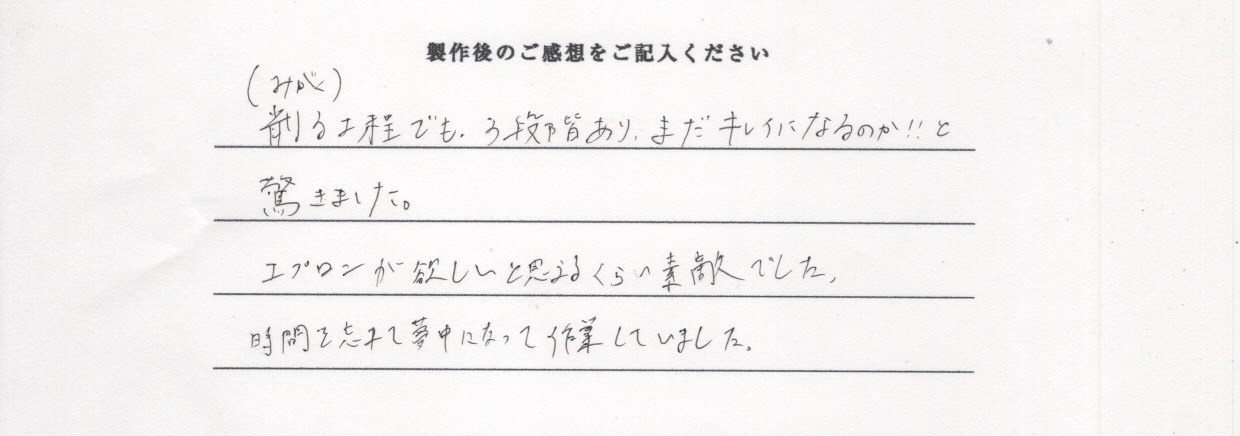 製作後のご感想をご記入ください
(みがく)
削る工程でも、3段階あり、まだキレイになるのか!!と
驚きました。
エプロンが欲しいと思えるくらい素敵でした。
時間を忘れて夢中になって作業していました。